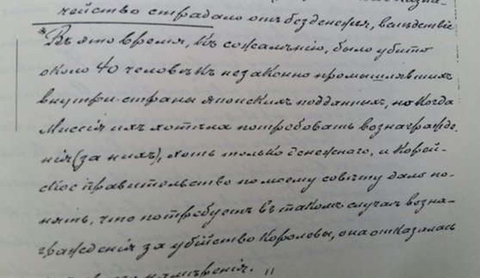 чейство страдало отъ безденежья, вслѣдствіе
*Въ это время, къ сожалѣнію, было убито
около 40 человѣкъ незаконно промышлявшихъ
внутри страны японскихъ подданныхъ, но когда
Миссія ихъ хотѣла потребовать вознагражде-
нія (за нихъ), хоть только денежнаго, и Корей-
ское правительство по моему совѣту дало по-
нять, что потребуетъ въ такомъ случаѣ возна-
гражденія за убійство Королевы, она отказалась
намѣренія. "